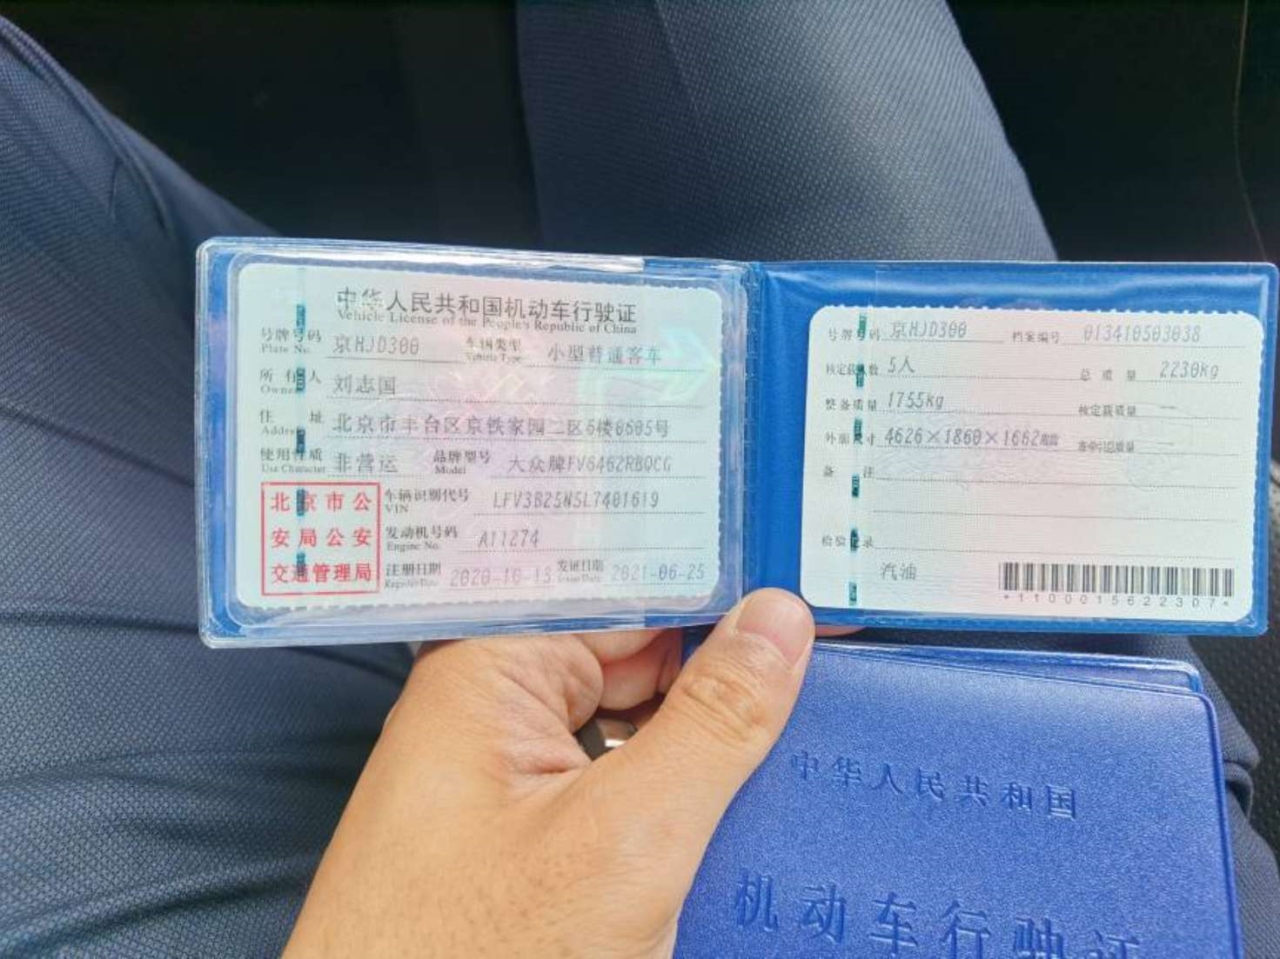 中华人民共和国机动车行驶证
Vehicle License of the People's Republic of China
号牌号码 京HJD300 车辆类型 小型普通客车
Plate No. Vehicle Type
所有人 刘志国
Owner
住址 北京市丰台区京铁家园二区6楼0605号
Address
使用性质 非营运 品牌型号 大众牌FV6462RBQCG
Use Character Model
北京市公
安局公安
交通管理局
车辆识别代号 LFV3B25N5L7401619
VIN
发动机号码 A11274
Engine No.
注册日期 2020-10-13 发证日期 2021-06-25
Register Date Issue Date
号牌号码 京HJD300 档案编号 013410503038
核定载人数 5人 总质量 2230kg
整备质量 1755kg 核定载质量
外廓尺寸 4626×1860×1662
备注
检验记录
汽油
*1100015622307*
中华人民共和国
机动车行驶证